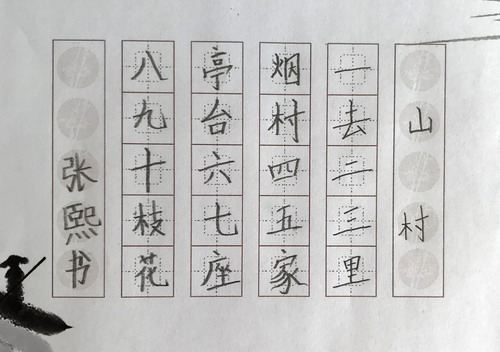 山村
一去二三里
烟村四五家
亭台六七座
八九十枝花
张熙书